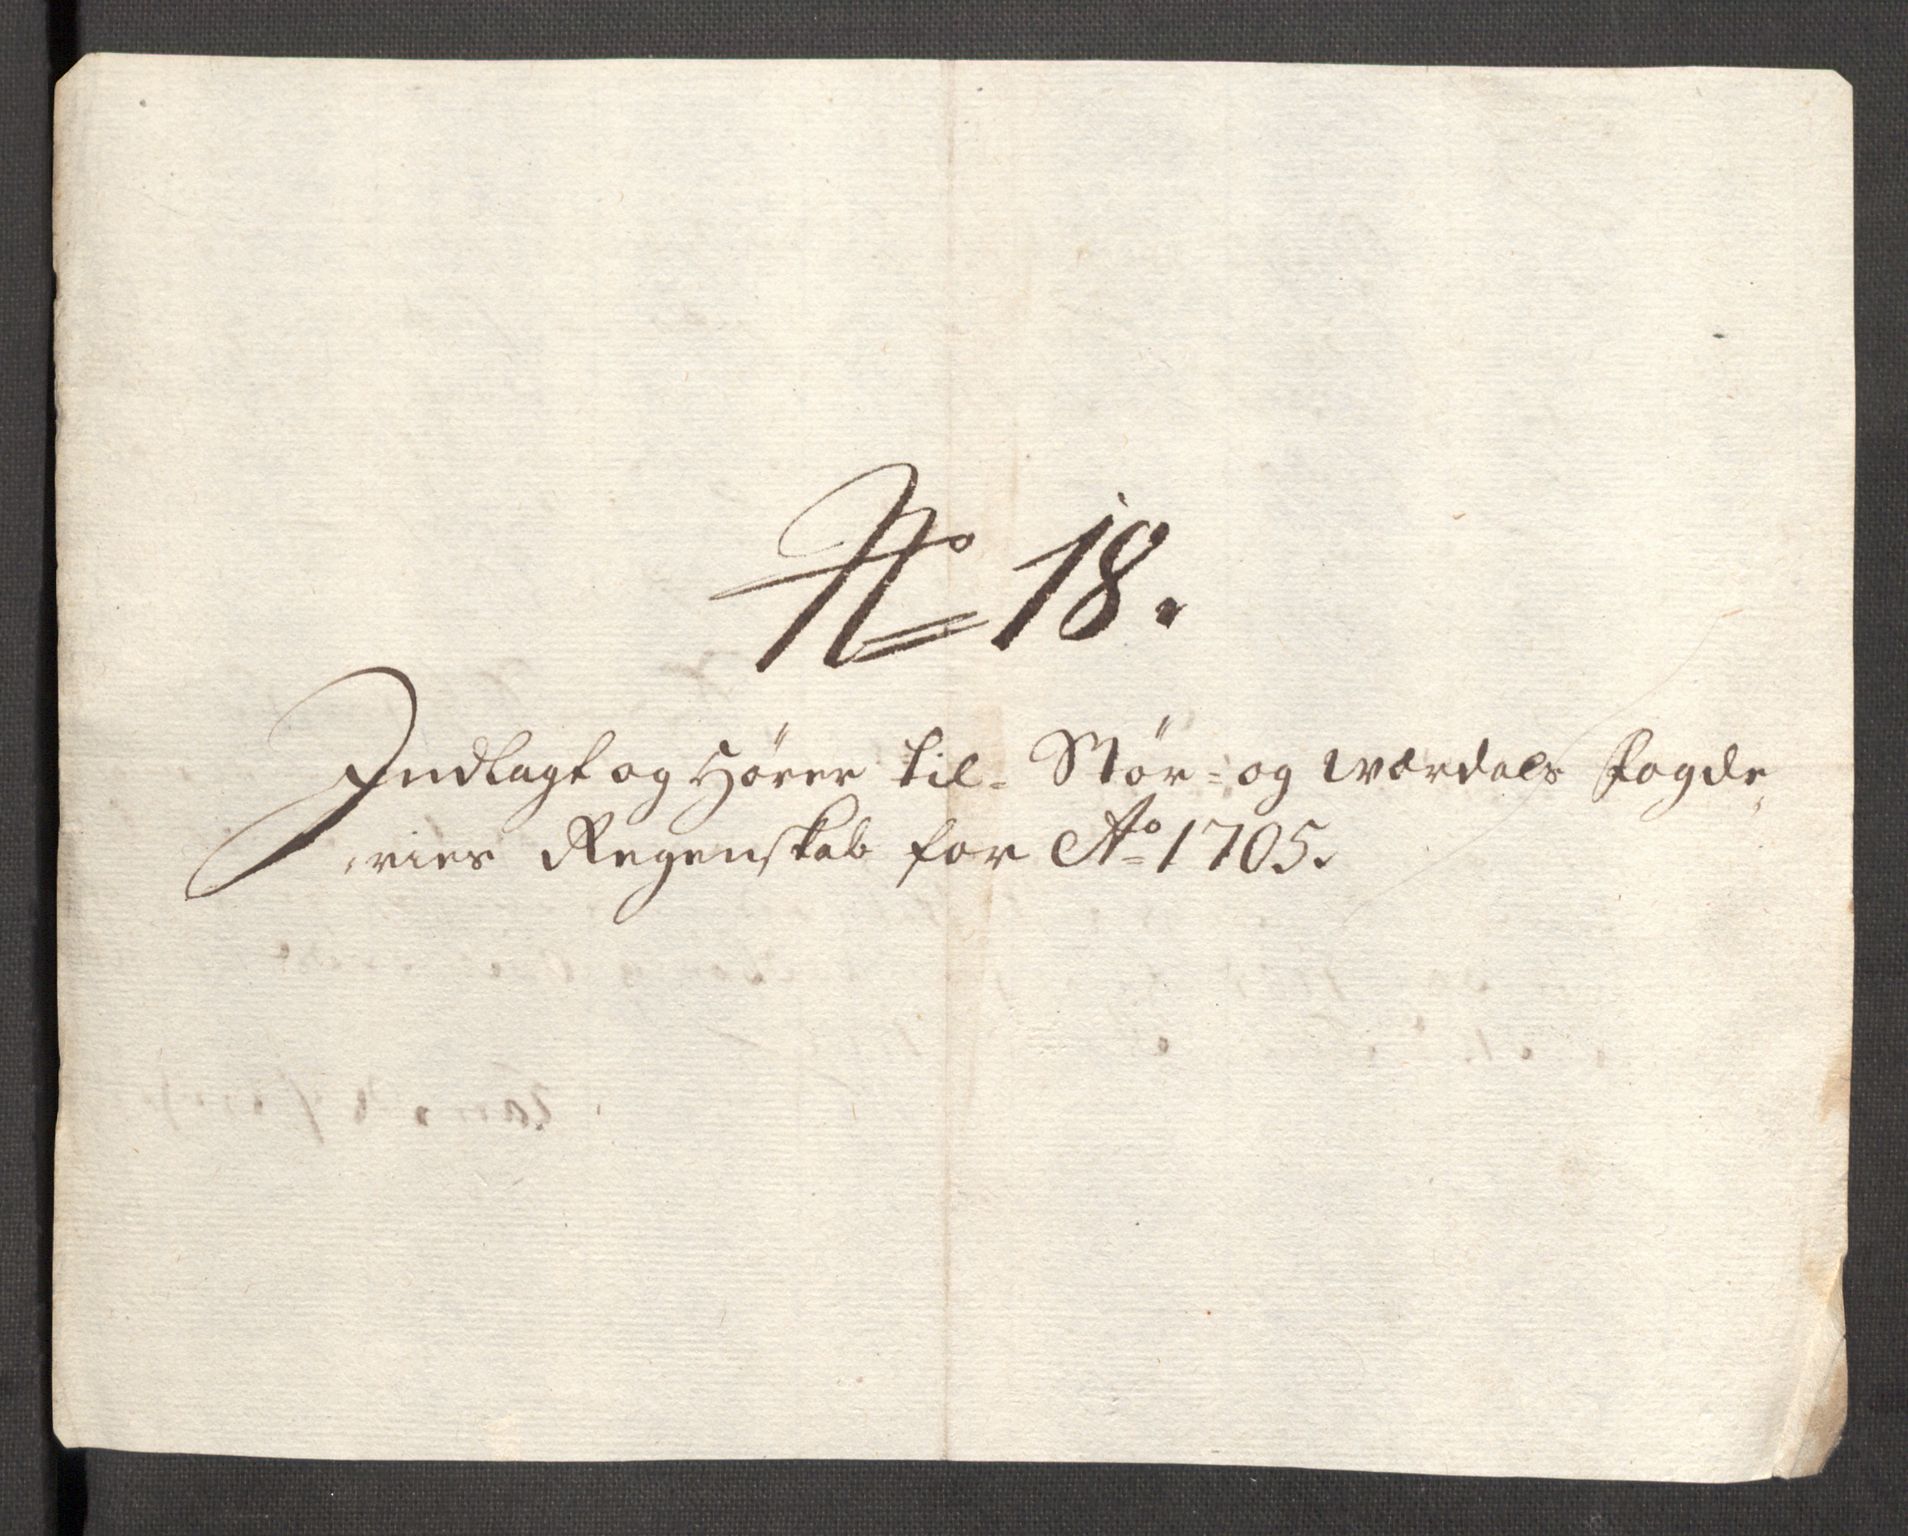 No 18.
Indlagt og Hører til Stør- og Værdals Fogde,
,ries Regenskab for Ao 1705.